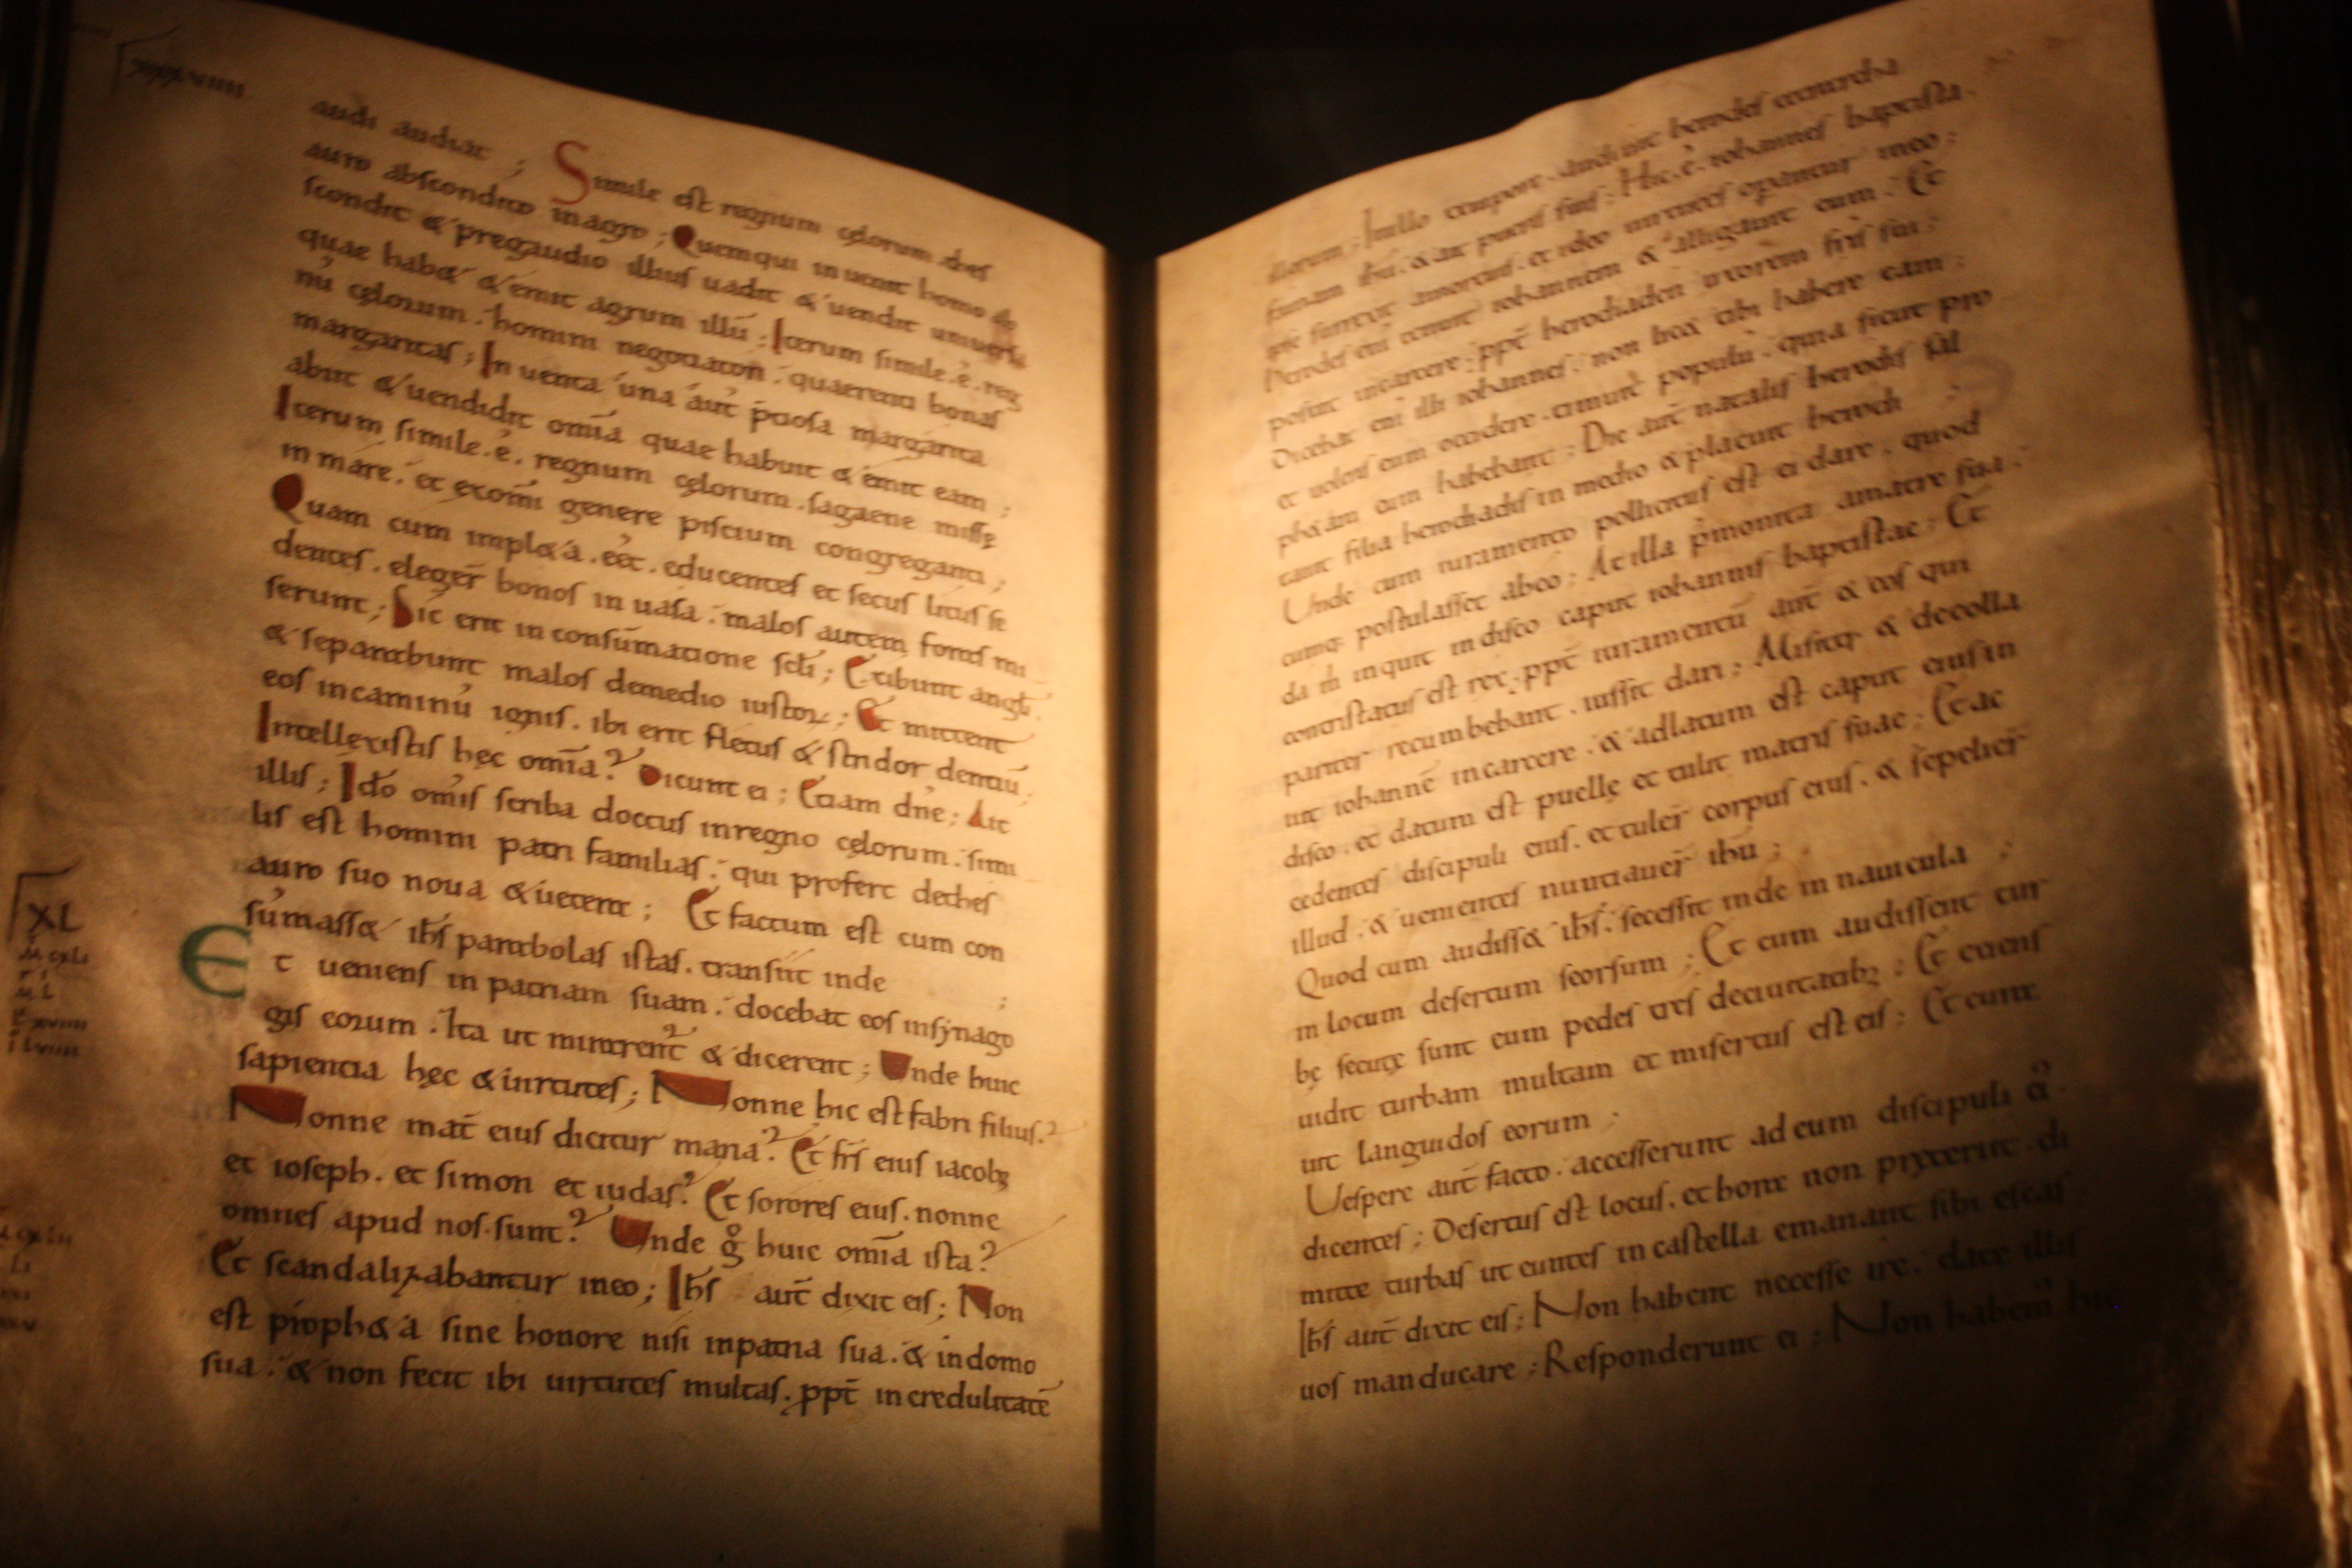 xxxviiii
audi audiat ; Simile est regnum cęlorum thes
auro abscondito in agro ; Quem qui inuenit homo ab
scondit & pregaudio illius uadit & uendit uniuersa
quae hab& & emit agrum illū ; Iterum simile . ē . reg
nū cęlorum . homini negotiatori . quaerenti bonas
margaritas ; Inuenta una aut̄ p̄ciosa margarita
abiit & uendidit om̄ia quae habuit & emit eam ;
Iterum simile . ē . regnum cęlorum . sagaene missę
in mare . et ex om̄i genere piscium congreganti ;
Quam cum impl&a . eēt . educentes et secus litus se
dentes . eleger̄ bonos in uasa . malos autem foras mi
serunt ; Sic erit in consūmatione sc̄li ; Exibunt angl̄i .
& separabunt malos demedio iustoꝝ ; Et mittent
eos incaminū ignis . ibi erit fletus & stridor dentiū ;
Intellexistis hęc om̄ia ? Dicunt ei ; Etiam dn̄e ; Ait
illis ; Ido om̄is scriba doctus inregno cęlorum . simi
lis est homini patri familias . qui profert dethes
auro suo noua & uetera ; Et factum est cum con
sūmass& ih̄s parabolas istas . transiit inde ;
XL
Et ueniens in patriam suam . docebat eos insynago
gis eorum . Ita ut mirarent̄ & dicerent ; Unde huic
sapientia hęc & uirtutes ; Nonne hic est fabri filius ?
Nonne mat̄ eius dicitur maria ? Et fr̄s eius iacobꝫ
et ioseph . et simon et iudas ? Et sorores eius . nonne
omnes apud nos sunt ? Unde g̊ huic om̄ia ista ?
Et scandalizabantur ineo ; Ih̄s aut̄ dixit eis ; Non
est proph&a sine honore nisi inpatria sua . & indomo
sua . & non fecit ibi uirtutes multas . ppt̄ incredulitatē
illorum ; Inillo tempore audiuit herodes tetrarcha
famam ih̄u . & ait pueris suis ; Hic . ē . iohannes baptista .
ipse surrexit amortuis . et ideo uirtutes operantur ineo ;
Herodes eni tenuit iohannem & alligauit eum . Et
posuit incarcere . ppt̄ herodiaden uxorem fr̄is sui ;
Dicebat eni illi iohannes . non lic& tibi habere eam ;
et uolens eum occidere . timuit populū . quia sicut pro
ph&am eum habebant ; Die aut̄ natalis herodis sal
tauit filia herodiadis in medio & placuit herodi ;
Unde cum iuramento pollicitus est ei dare . quod
cumq; postulasset abeo ; At illa p̄monita amatre sua .
da m̄ inquit in disco caput iohannis baptistae ; Et
contristatus est rex . ppt̄ iuramentū aut̄ & eos qui
pariter recumbebant . iussit dari ; Misitq; & decolla
uit iohannē incarcere . & adlatum est caput eius in
disco . et datum est puellę et tulit matri suae ; Et ac
cedentes discipuli eius . et tuler̄ corpus eius . & sepelier̄
illud . & uenientes nuntiauer̄ ih̄u ;
Quod cum audiss& ih̄s . secessit inde in nauicula ;
in locum desertum seorsum ; Et cum audissent tur
bę secutę sunt eum pedestres deciuitatibꝫ ; Et exiens
uidit turbam multam et misertus est eis ; Et cura
uit languidos eorum ;
Uespere aut̄ facto . accesserunt ad eum discipuli
dicentes ; Desertus est locus . et hora non pręteriit . di
mitte turbas ut euntes in castella emant sibi escas ;
Ih̄s aut̄ dixit eis ; Non habent necesse ire . date illis
uos manducare ; Responderunt ei ; Non habem̄ hic